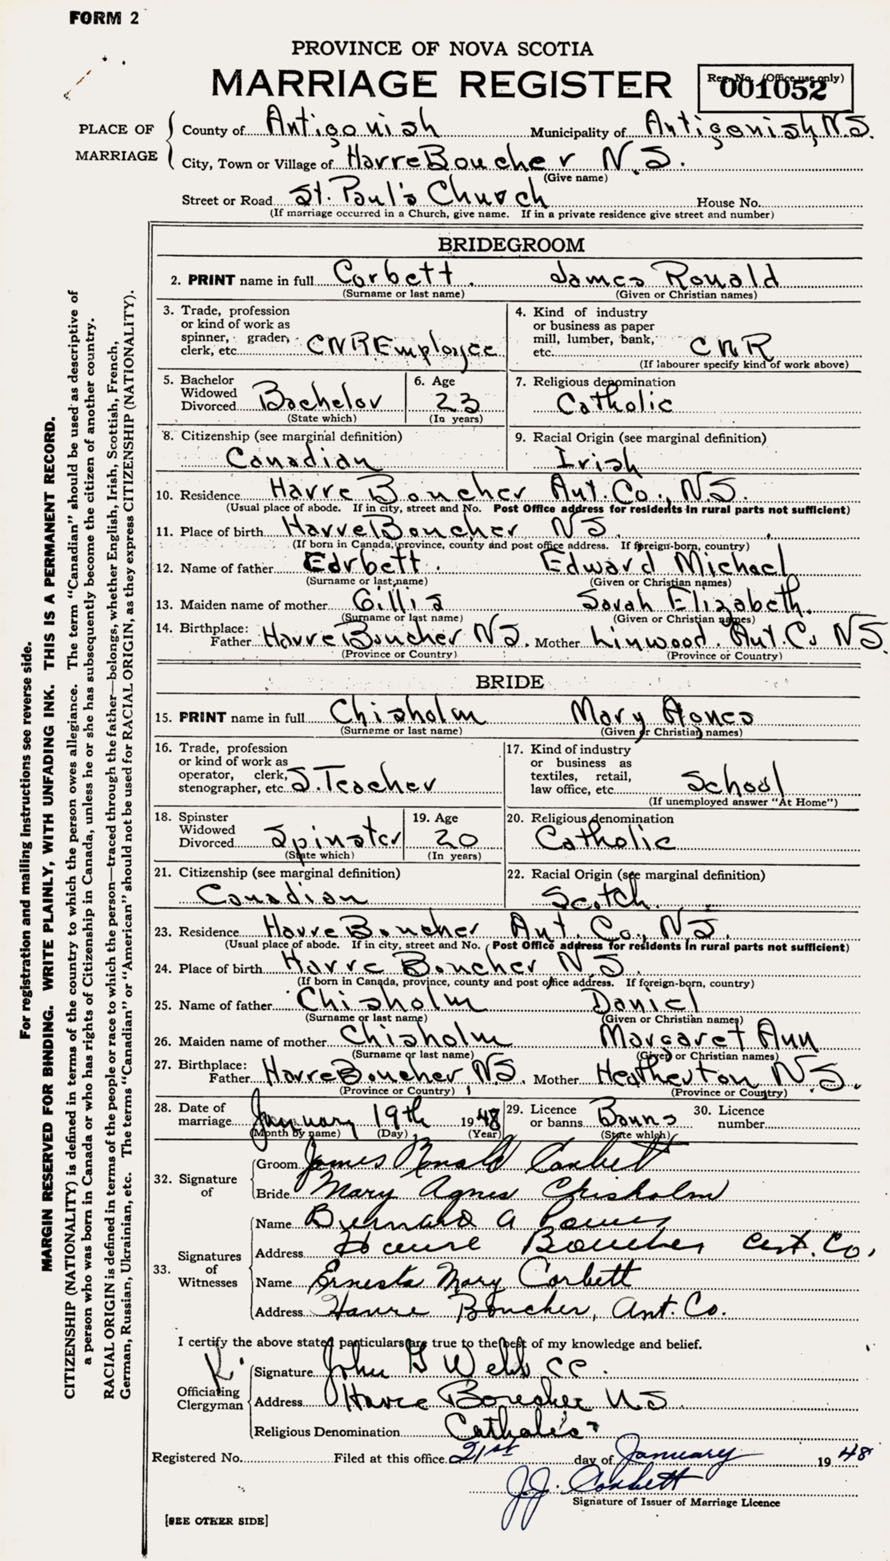 FORM 2
PROVINCE OF NOVA SCOTIA
MARRIAGE REGISTER
Reg. No. (Office use only)
001052
PLACE OF MARRIAGE
County of Antigonish Municipality of Antigonish N.S.
City, Town or Village of Havre Boucher N.S.
(Give name)
Street or Road St. Paul's Church House No.
(If marriage occurred in a Church, give name. If in a private residence give street and number)
BRIDEGROOM
2. PRINT name in full Corbett James Ronald
(Surname or last name) (Given or Christian names)
3. Trade, profession
or kind of work as
spinner, grader,
clerk, etc. CNR Employee
4. Kind of industry
or business as paper
mill, lumber, bank,
etc. CNR
(If labourer specify kind of work above)
5. Bachelor
Widowed
Divorced Bachelor
(State which)
6. Age
23
(In years)
7. Religious denomination
Catholic
8. Citizenship (see marginal definition)
Canadian
9. Racial Origin (see marginal definition)
Irish
10. Residence Havre Boucher Ant. Co., N.S.
(Usual place of abode. If in city, street and No. Post Office address for residents in rural parts not sufficient)
11. Place of birth Havre Boucher NS
(If born in Canada, province, county and post office address. If foreign-born, country)
12. Name of father Corbett Edward Michael
(Surname or last name) (Given or Christian names)
13. Maiden name of mother Gillis Sarah Elizabeth
(Surname or last name) (Given or Christian names)
14. Birthplace:
Father Havre Boucher NS. Mother Linwood Ant. Co NS
(Province or Country) (Province or Country)
BRIDE
15. PRINT name in full Chisholm Mary Agnes
(Surname or last name) (Given or Christian names)
16. Trade, profession
or kind of work as
operator, clerk,
stenographer, etc. S. Teacher
17. Kind of industry
or business as
textiles, retail,
law office, etc. School
(If unemployed answer "At Home")
18. Spinster
Widowed
Divorced Spinster
(State which)
19. Age
20
(In years)
20. Religious denomination
Catholic
21. Citizenship (see marginal definition)
Canadian
22. Racial Origin (see marginal definition)
Scotch
23. Residence Havre Boucher Ant. Co., N.S.
(Usual place of abode. If in city, street and No. Post Office address for residents in rural parts not sufficient)
24. Place of birth Havre Boucher N.S.
(If born in Canada, province, county and post office address. If foreign-born, country)
25. Name of father Chisholm Daniel
(Surname or last name) (Given or Christian names)
26. Maiden name of mother Chisholm Margaret Ann
(Surname or last name) (Given or Christian names)
27. Birthplace:
Father Havre Boucher NS. Mother Heatherton N.S.
(Province or Country) (Province or Country)
28. Date of
marriage January 19th 1948
(Month by name) (Day) (Year)
29. Licence
or banns Banns
(State which)
30. Licence
number
32. Signature of
Groom James Ronald Corbett
Bride Mary Agnes Chisholm
33. Signatures of Witnesses
Name Bernard A
Address Havre Boucher Ant. Co.
Name Ernesta Mary Corbett
Address Havre Boucher, Ant. Co.
I certify the above stated particulars are true to the best of my knowledge and belief.
Officiating Clergyman
Signature John G Webb CC.
Address Havre Boucher NS
Religious Denomination Catholic
Registered No. Filed at this office 21st day of January 1948
J.J. Corbett
Signature of Issuer of Marriage Licence
[SEE OTHER SIDE]
For registration and mailing instructions see reverse side.
MARGIN RESERVED FOR BINDING. WRITE PLAINLY, WITH UNFADING INK. THIS IS A PERMANENT RECORD.
CITIZENSHIP (NATIONALITY) is defined in terms of the country to which the person owes allegiance. The term "Canadian" should be used as descriptive of
a person who was born in Canada or who has rights of Citizenship in Canada, unless he or she has subsequently become the citizen of another country.
RACIAL ORIGIN is defined in terms of the people or race to which the person—traced through the father—belongs, whether English, Irish, Scottish, French,
German, Russian, Ukrainian, etc. The terms "Canadian" or "American" should not be used for RACIAL ORIGIN, as they express CITIZENSHIP (NATIONALITY).